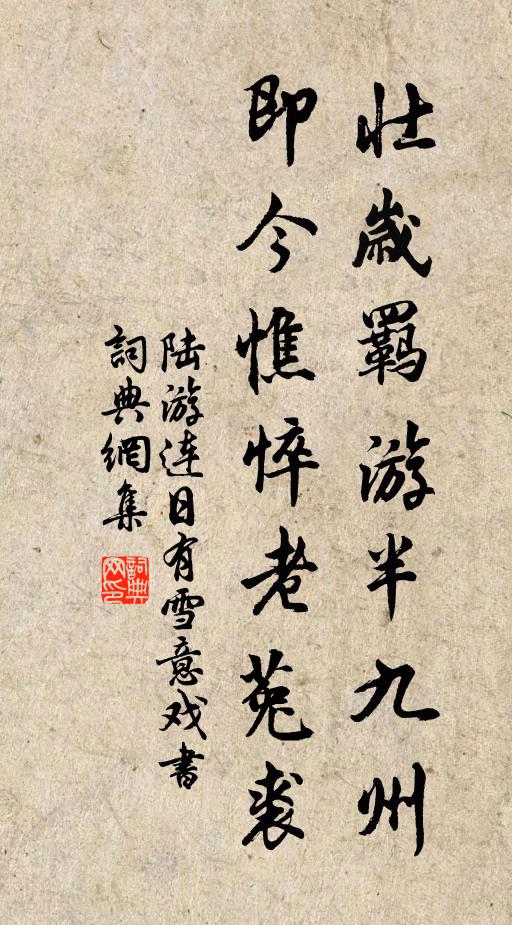 壮歳羈游半九州
即今憔悴老菟裘
陆游连日有雪意戏书
詞典網集
詞典網印